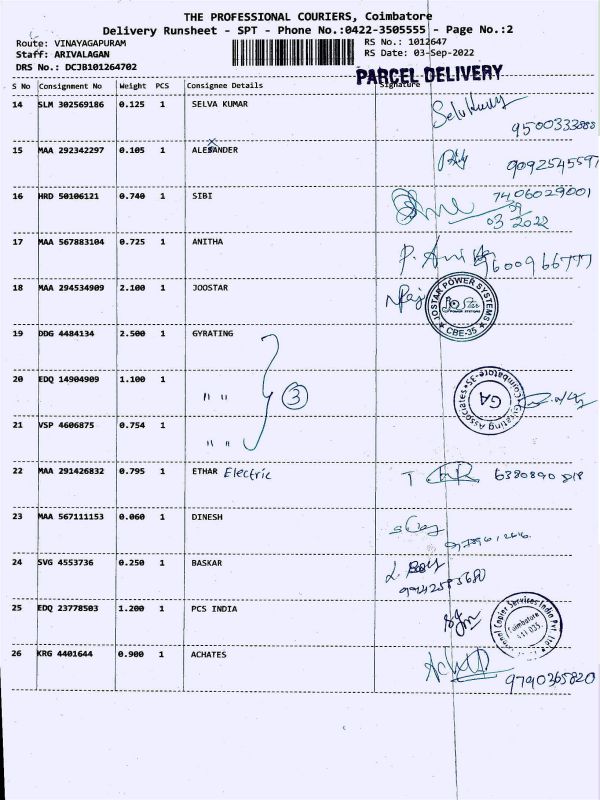 THE PROFESSIONAL COURIERS, Coimbatore
Delivery Runsheet - SPT - Phone No.:0422-3505555 - Page No.:2
Route: VINAYAGAPURAM RS No.: 1012647
Staff: ARIVALAGAN RS Date: 03-Sep-2022
DRS No.: DCJB101264702
PARCEL DELIVERY
S No Consignment No Weight PCS Consignee Details Signature
14 SLM 302569186 0.125 1 SELVA KUMAR
9500333888
15 MAA 292342297 0.105 1 ALEXANDER
9092545597
16 HRD 50106121 0.740 1 SIBI 7406029001
03 09 2022
17 MAA 567883104 0.725 1 ANITHA P. Anitha
9600966777
18 MAA 294534909 2.100 1 JOOSTAR
JOSTAR POWER SYSTEMS
CBE-35
19 DDG 4484134 2.500 1 GYRATING
20 EDQ 14904909 1.100 1
" " 3
GA
21 VSP 4606875 0.754 1
" "
22 MAA 291426832 0.795 1 ETHAR Electric
23 MAA 567111153 0.060 1 DINESH
24 SVG 4553736 0.250 1 BASKAR
25 EDQ 23778503 1.200 1 PCS INDIA
Copier Services India Pvt Ltd
Coimbatore
26 KRG 4401644 0.900 1 ACHATES
9790365820